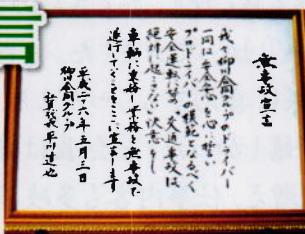 言
無事故宣言
我々柳川合同グループのドライバー
一同は安全を心に誓い
プロドライバーの模範となるべく
安全運転に努め交通事故は
絶対に起こさない決意をもち
車輌に乗務し業務を無事故で
遂行していくことをここに宣言します
平成二十六年五月三日
柳川合同グループ
早川達也